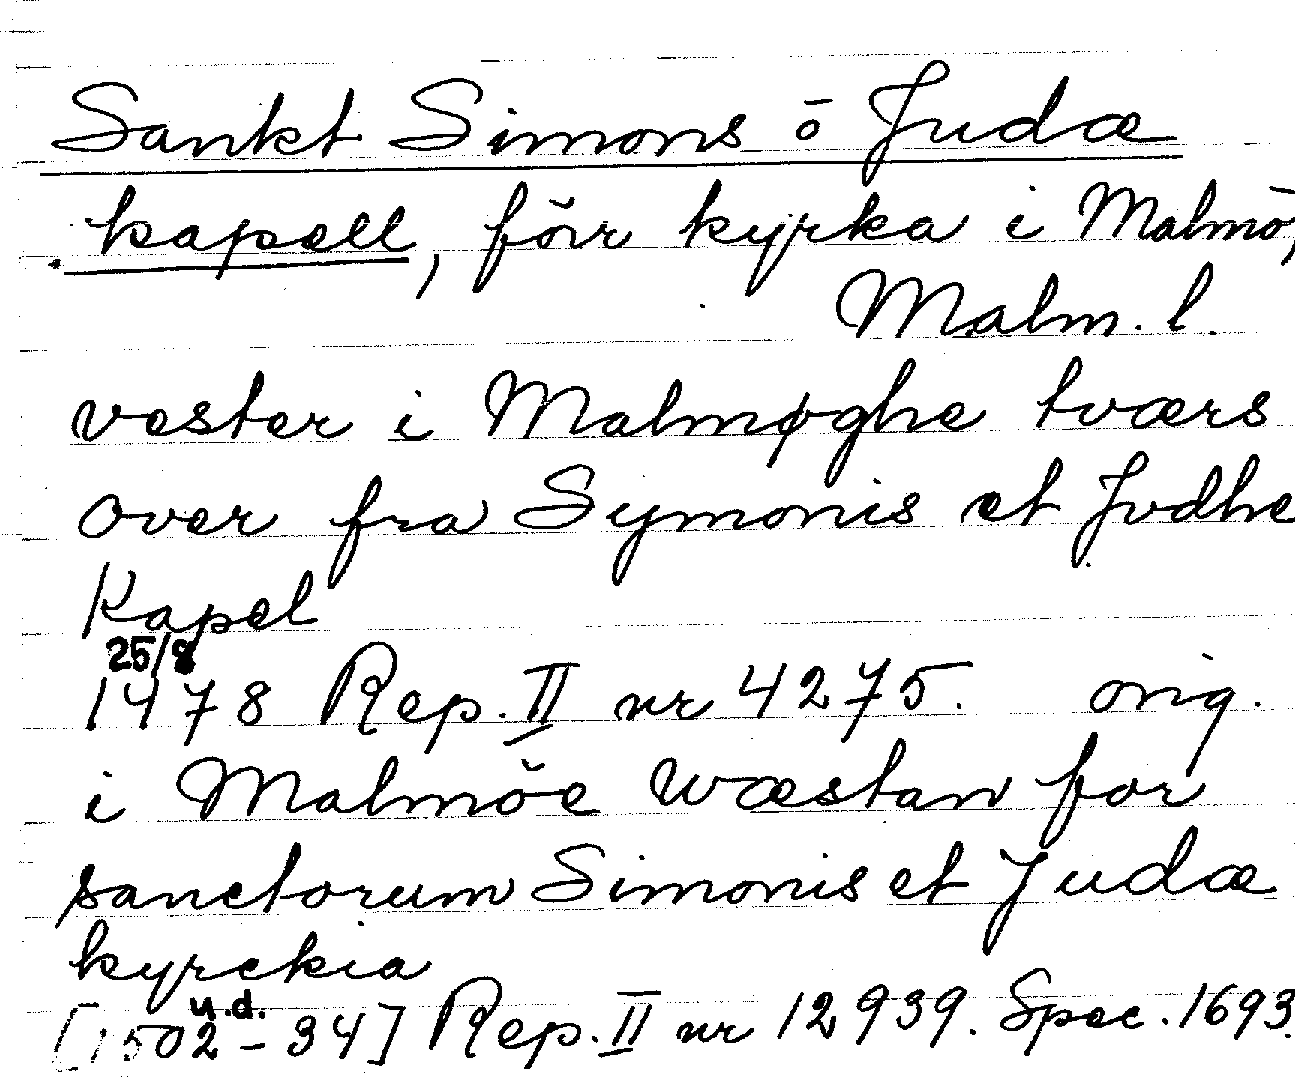 Sankt Simons o Judæ
kapell, förr kyrka i Malmö,
Malm. l.
vester i Malmøghe tværs
over fra Symonis et Jvdhe
Kapel
25/8
1478 Rep. II nr 4275. orig.
i Malmöe wæstan for
sanctorum Simonis et Judæ
kyrckia
u.d.
[1502-34] Rep. II nr 12939. Spec. 1693.